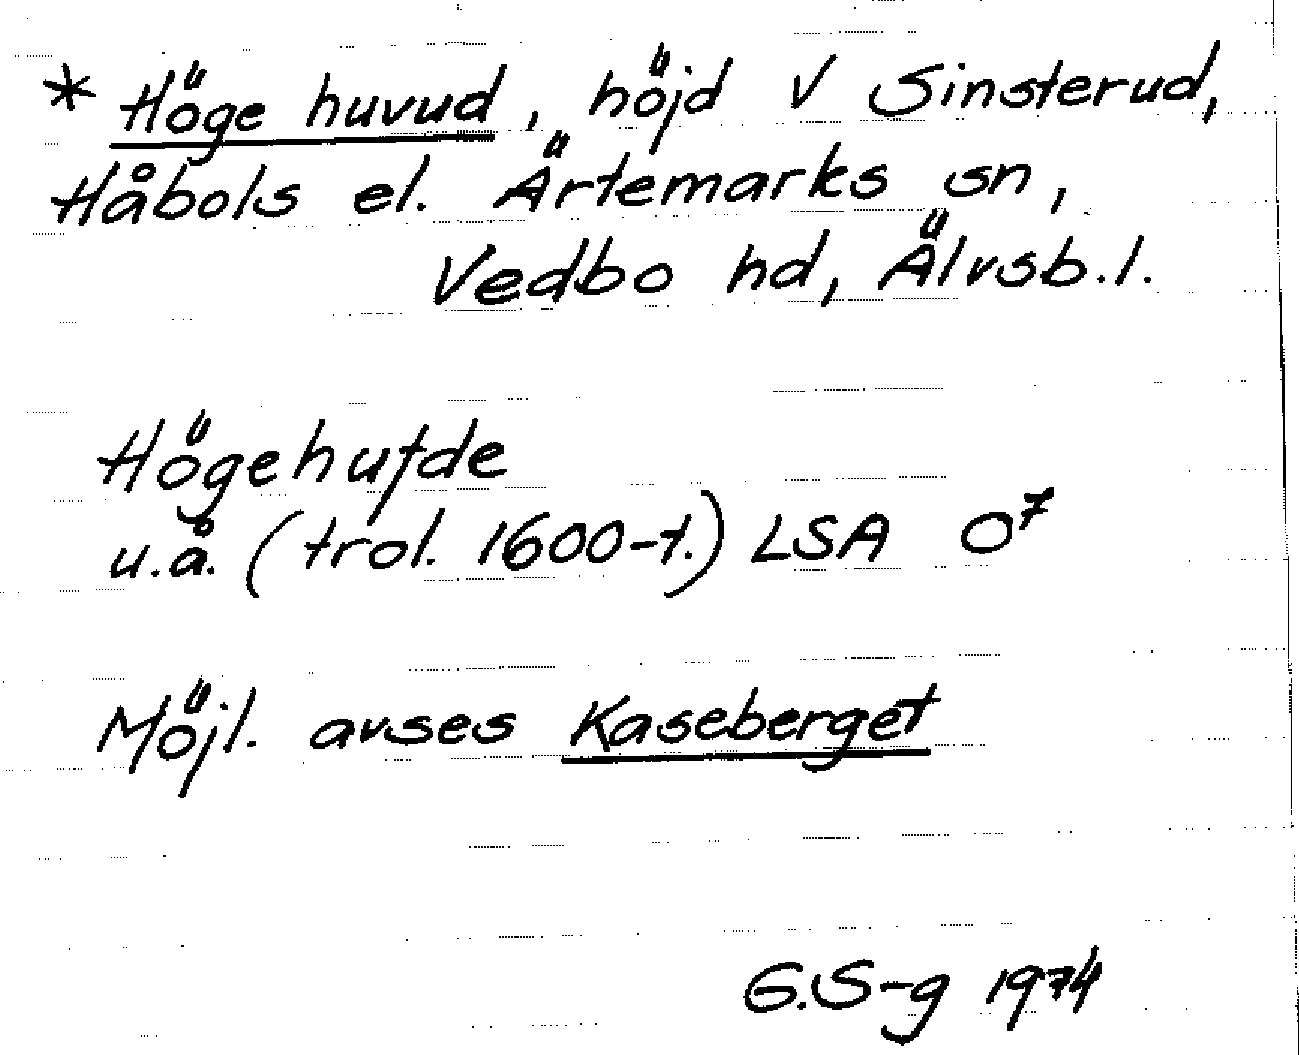 * Höge huvud, höjd V Sinsterud,
Håbols el. Ärtemarks sn,
Vedbo hd, Älvsb.l.
Högehufde
u.å. (trol. 1600-t.) LSA O⁷
Möjl. avses Kaseberget
G.S-g 1974